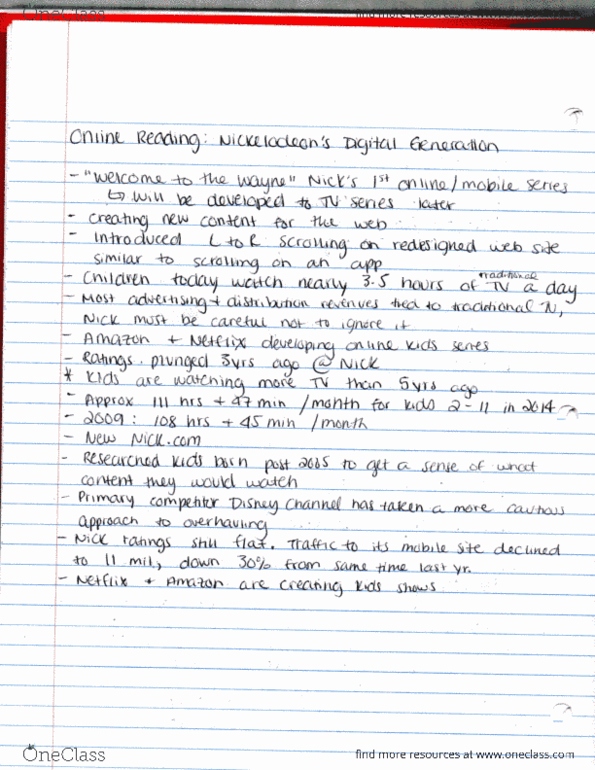 OneClass find more resources at www.oneclass.com
Online Reading: Nickelodeon's Digital Generation
- "Welcome to the Wayne" Nick's 1st online/mobile series
↳ will be developed to TV series later
- creating new content for the web
- Introduced L to R scrolling on redesigned web site
similar to scrolling on an app
- Children today watch nearly 3.5 hours of traditional TV a day
- Most advertising + distribution revenues tied to traditional TV,
Nick must be careful not to ignore it
- Amazon + Netflix developing online kids series
- Ratings plunged 3yrs ago @ Nick
* Kids are watching more TV than 5yrs ago
- Approx 111 hrs + 47 min /month for kids 2-11 in 2014
- 2009: 108 hrs + 45 min /month
- New Nick.com
- Researched kids born post 2005 to get a sense of what
content they would watch
- Primary competitor Disney Channel has taken a more cautious
approach to overhauling
- Nick ratings still flat. Traffic to its mobile site declined
to 11 mil, down 30% from same time last yr.
- Netflix + Amazon are creating kids shows
OneClass find more resources at www.oneclass.com